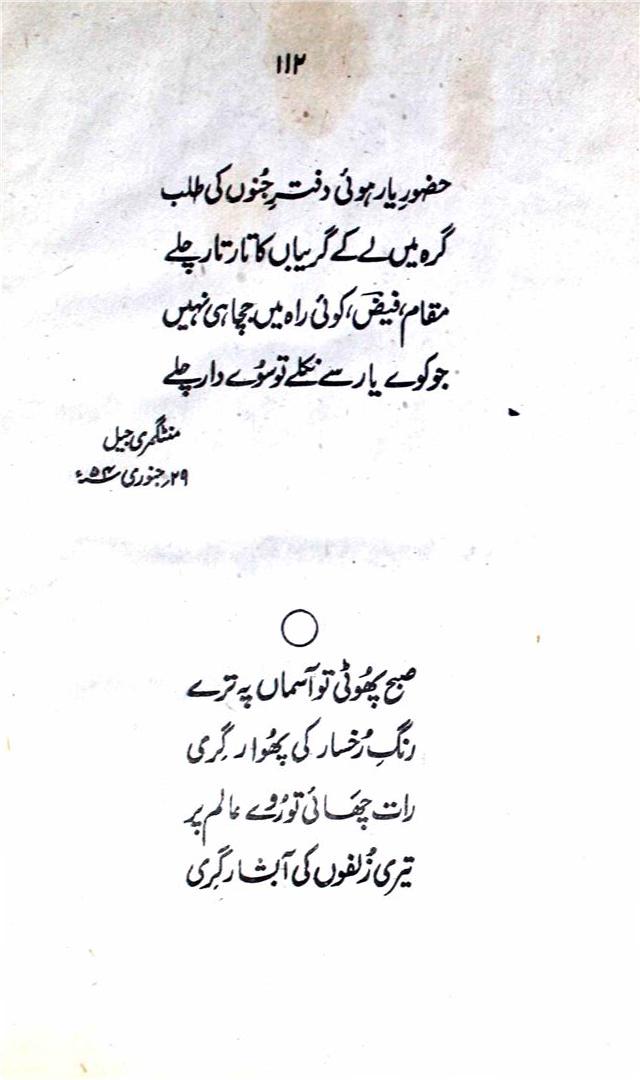 ۱۱۲
حضورِ یار ہوئی دفترِ جُنوں کی طلب
گرہ میں لے کے گریباں کا تار تار چلے
مقام، فیضؔ، کوئی راہ میں جچا ہی نہیں
جو کوے یار سے نکلے تو سُوے دار چلے
منٹگمری جیل
۲۹؍ جنوری ۵۴ء
صبح پھُوٹی تو آسماں پہ ترے
رنگِ رُخسار کی پھُوار گِری
رات چھَائی تو رُوے عالم پر
تیری زُلفوں کی آبشار گِری